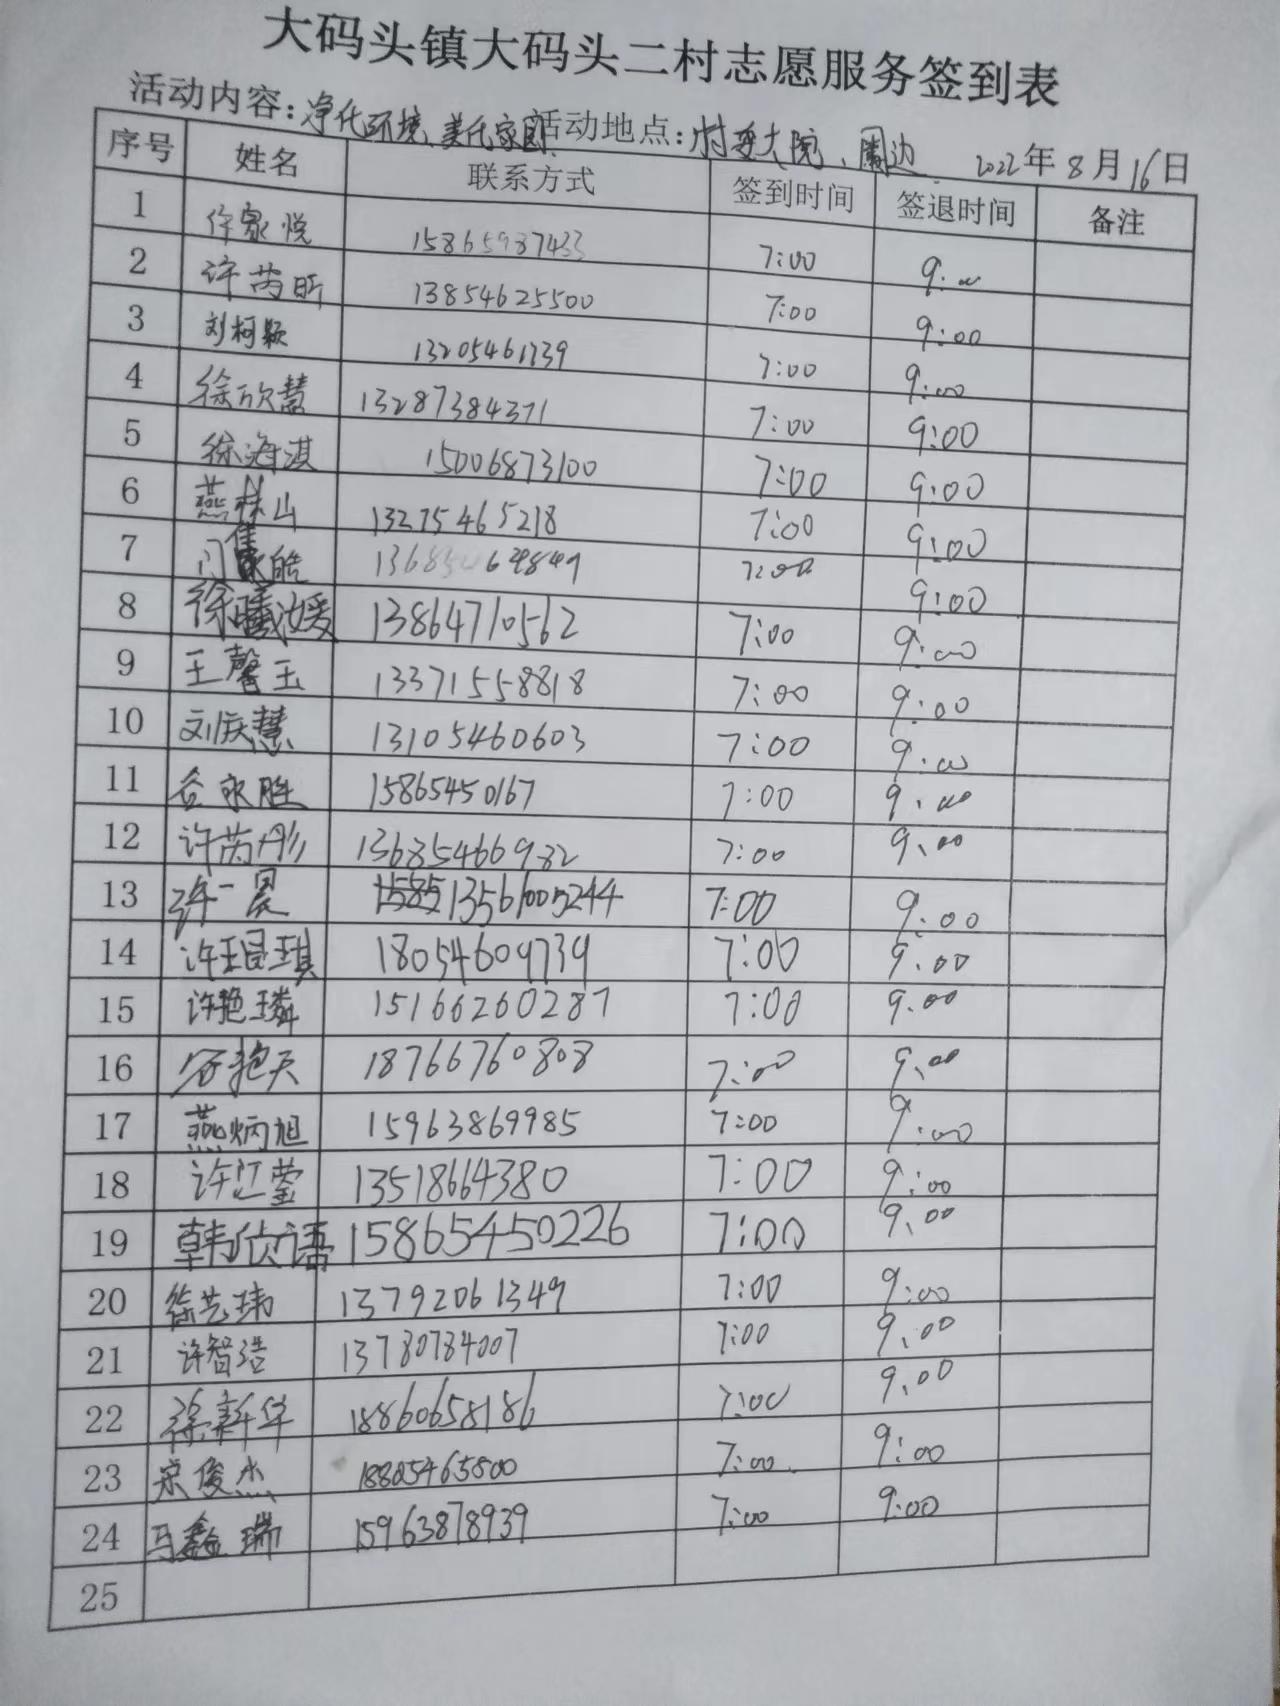 大码头镇大码头二村志愿服务签到表
活动内容：净化环境、美化家园 活动地点：村委大院、周边 2022年8月16日
序号 姓名 联系方式 签到时间 签退时间 备注
1 徐家悦 15865987433 7:00 9:00
2 许芮昕 13854625500 7:00 9:00
3 刘柯颖 13205461739 7:00 9:00
4 徐欣慧 13287384371 7:00 9:00
5 徐海淇 15006873100 7:00 9:00
6 燕林山 13275465218 7:00 9:00
7 7:00 9:00
8 徐曦媛 13864710562 7:00 9:00
9 王馨玉 13371558818 7:00 9:00
10 刘庆慧 13105460603 7:00 9:00
11 谷永胜 15865450167 7:00 9:00
12 许芮彤 13685466982 7:00 9:00
13 许一晨 13561005244 7:00 9:00
14 许琨琪 18054609739 7:00 9:00
15 许艳璘 15166260287 7:00 9:00
16 谷艳天 18766760808 7:00 9:00
17 燕炳旭 15963869985 7:00 9:00
18 许江莹 13518664380 7:00 9:00
19 韩欣语 15865450226 7:00 9:00
20 徐艺玮 13792061349 7:00 9:00
21 许智浩 13780784007 7:00 9:00
22 徐新华 18860658186 7:00 9:00
23 宋俊杰 18805465800 7:00 9:00
24 马鑫瑞 15963878939 7:00 9:00
25